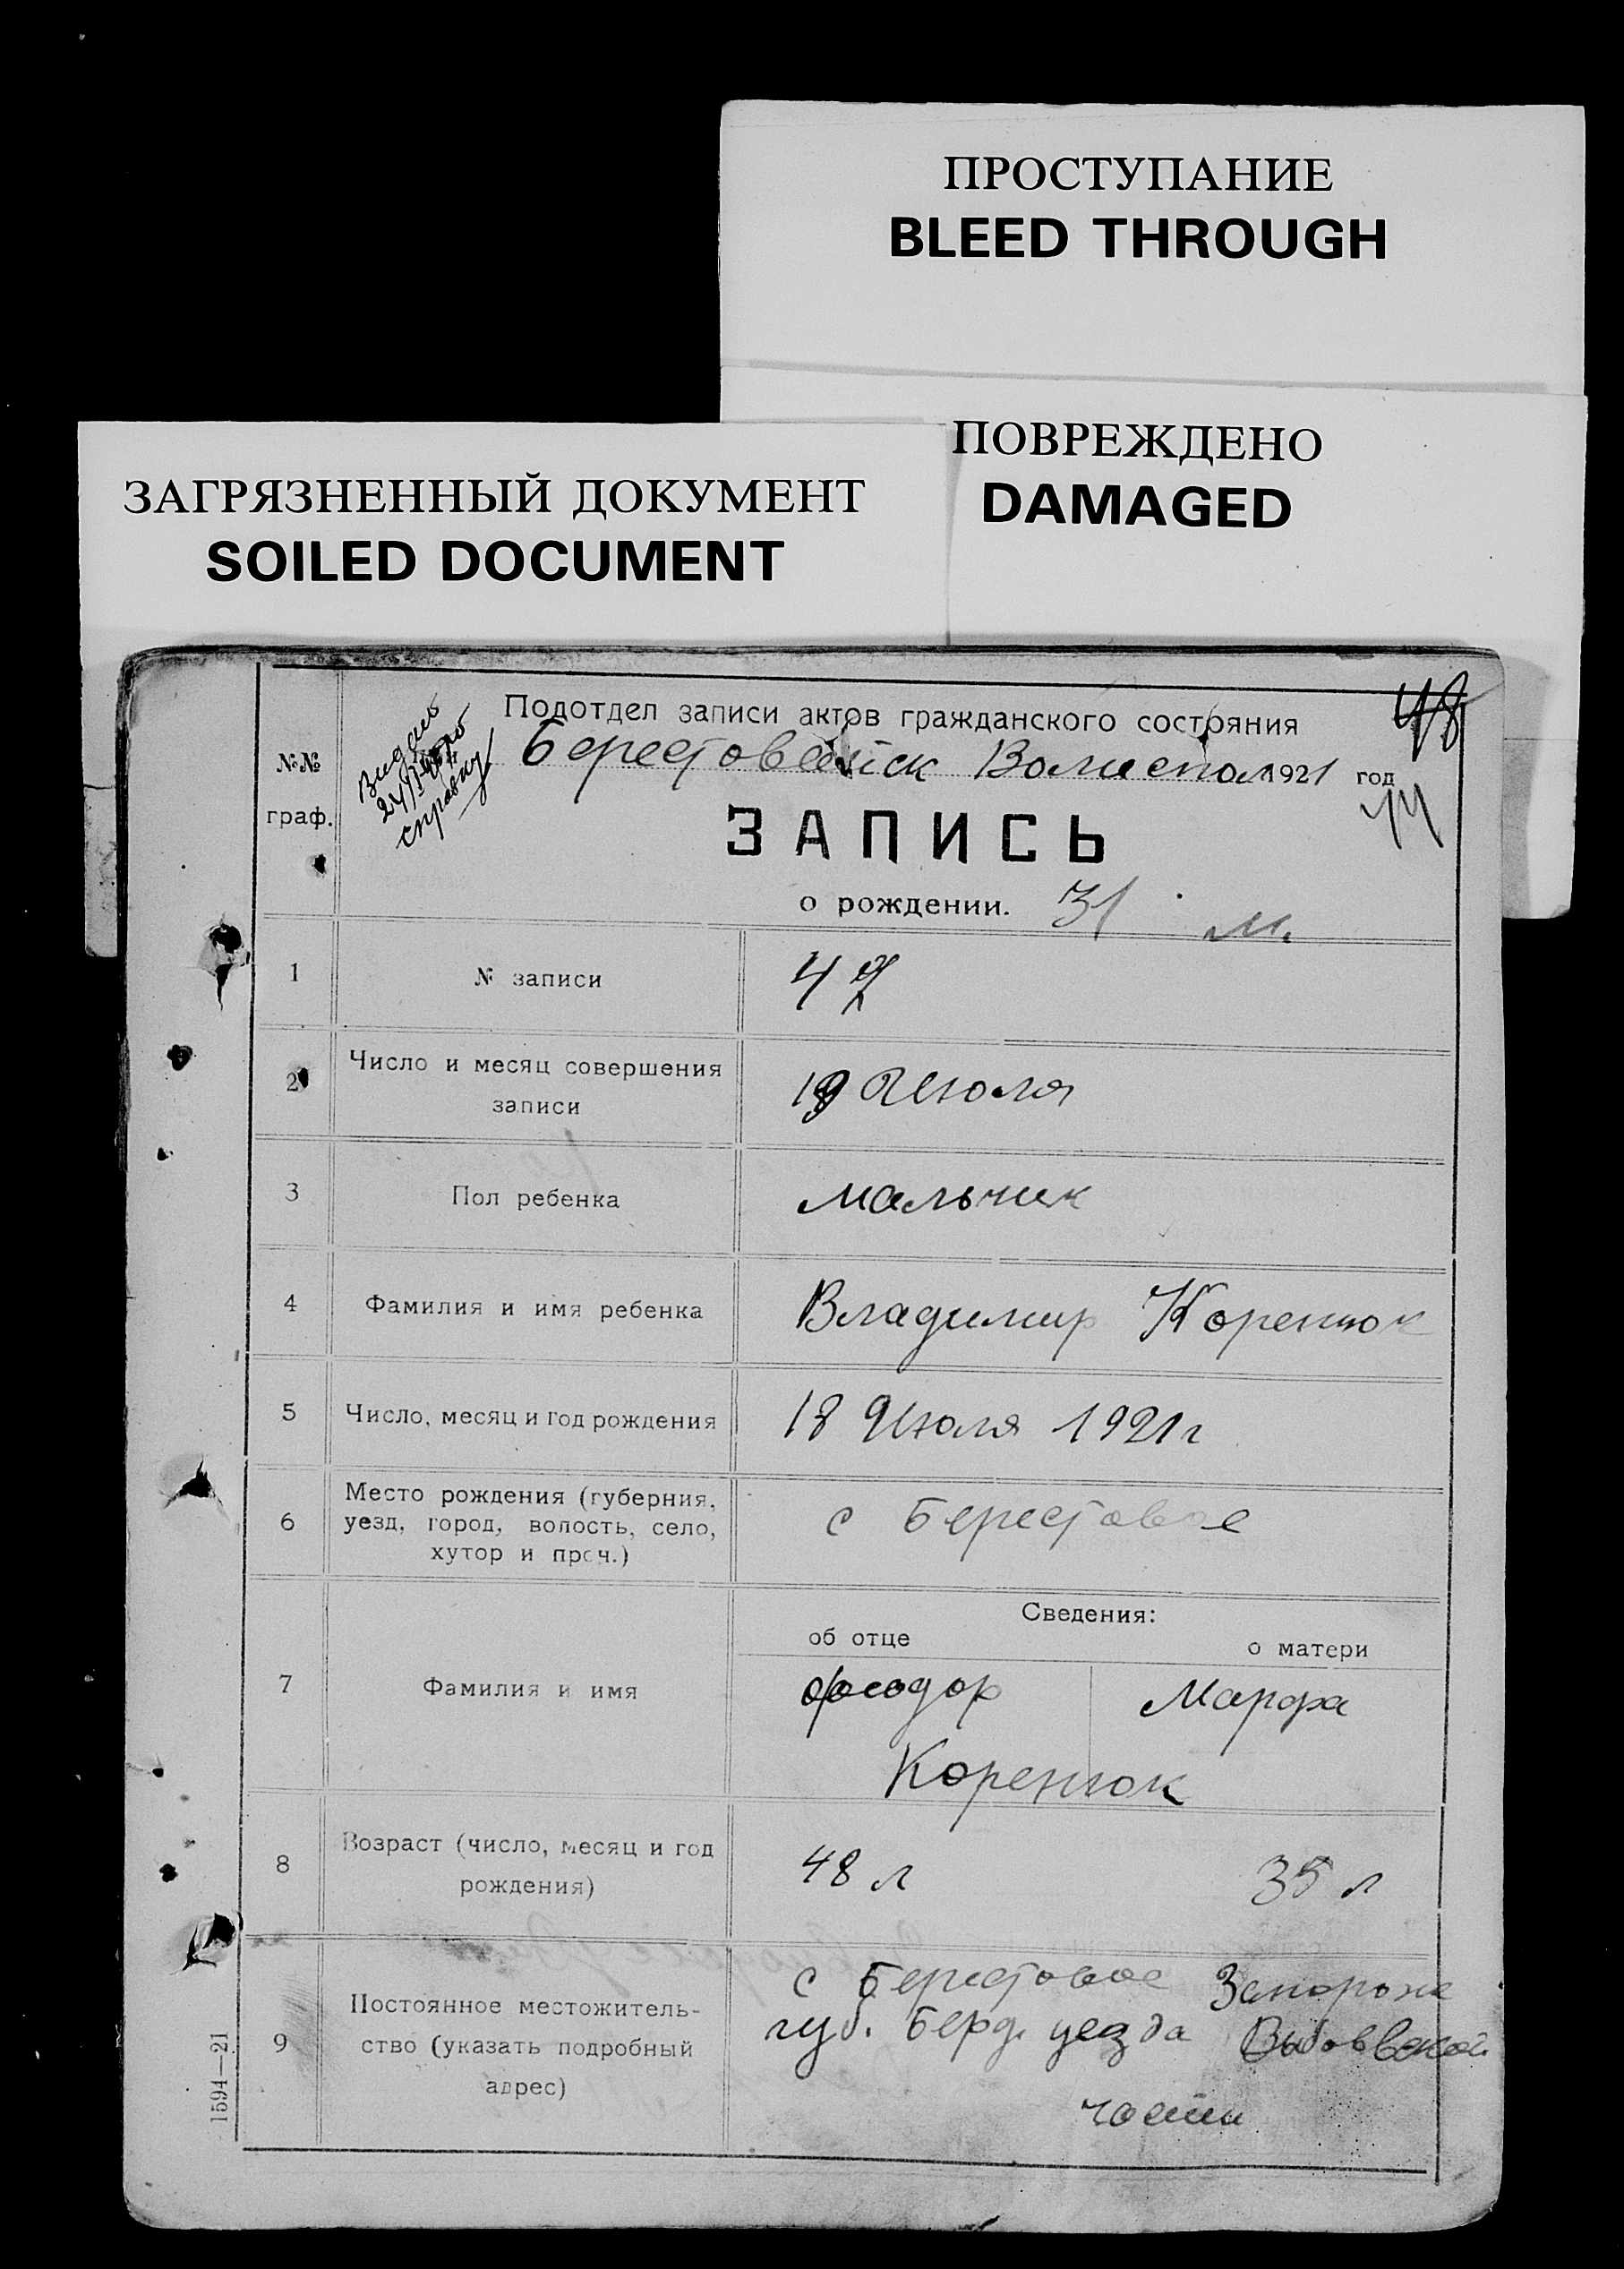 ПРОСТУПАНИЕ
BLEED THROUGH
ПОВРЕЖДЕНО
DAMAGED
ЗАГРЯЗНЕННЫЙ ДОКУМЕНТ
SOILED DOCUMENT
48
Подотдел записи актов гражданского состояния
Берестовейск 1921 год
№№
граф.
справку
ЗАПИСЬ
о рождении. 31 м.
1 № записи 47
2 Число и месяц совершения
записи
19 Июля
3 Пол ребенка мальчик
4 Фамилия и имя ребенка Владимир Коренюк
5 Число, месяц и год рождения 18 Июля 1921 г
6 Место рождения (губерния,
уезд, город, волость, село,
хутор и проч.)
с Берестовое
Сведения:
об отце о матери
7 Фамилия и имя Феодор Марфа
Коренюк
8 Возраст (число, месяц и год
рождения)
48 л 35 л
9 Постоянное местожитель-
ство (указать подробный
адрес)
с Берестовое Запорож
губ. Берд. уезда
части
1594—21